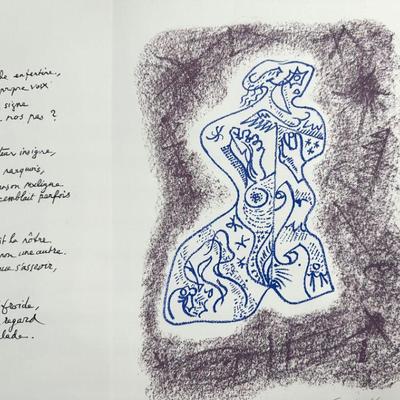 de enfertire,
propre voix
signe
nos pas ?
teur insigne,
narquois,
semblait parfois
it la nôtre
non une autre.
que s'asseoir,
froide,
regard
lade.